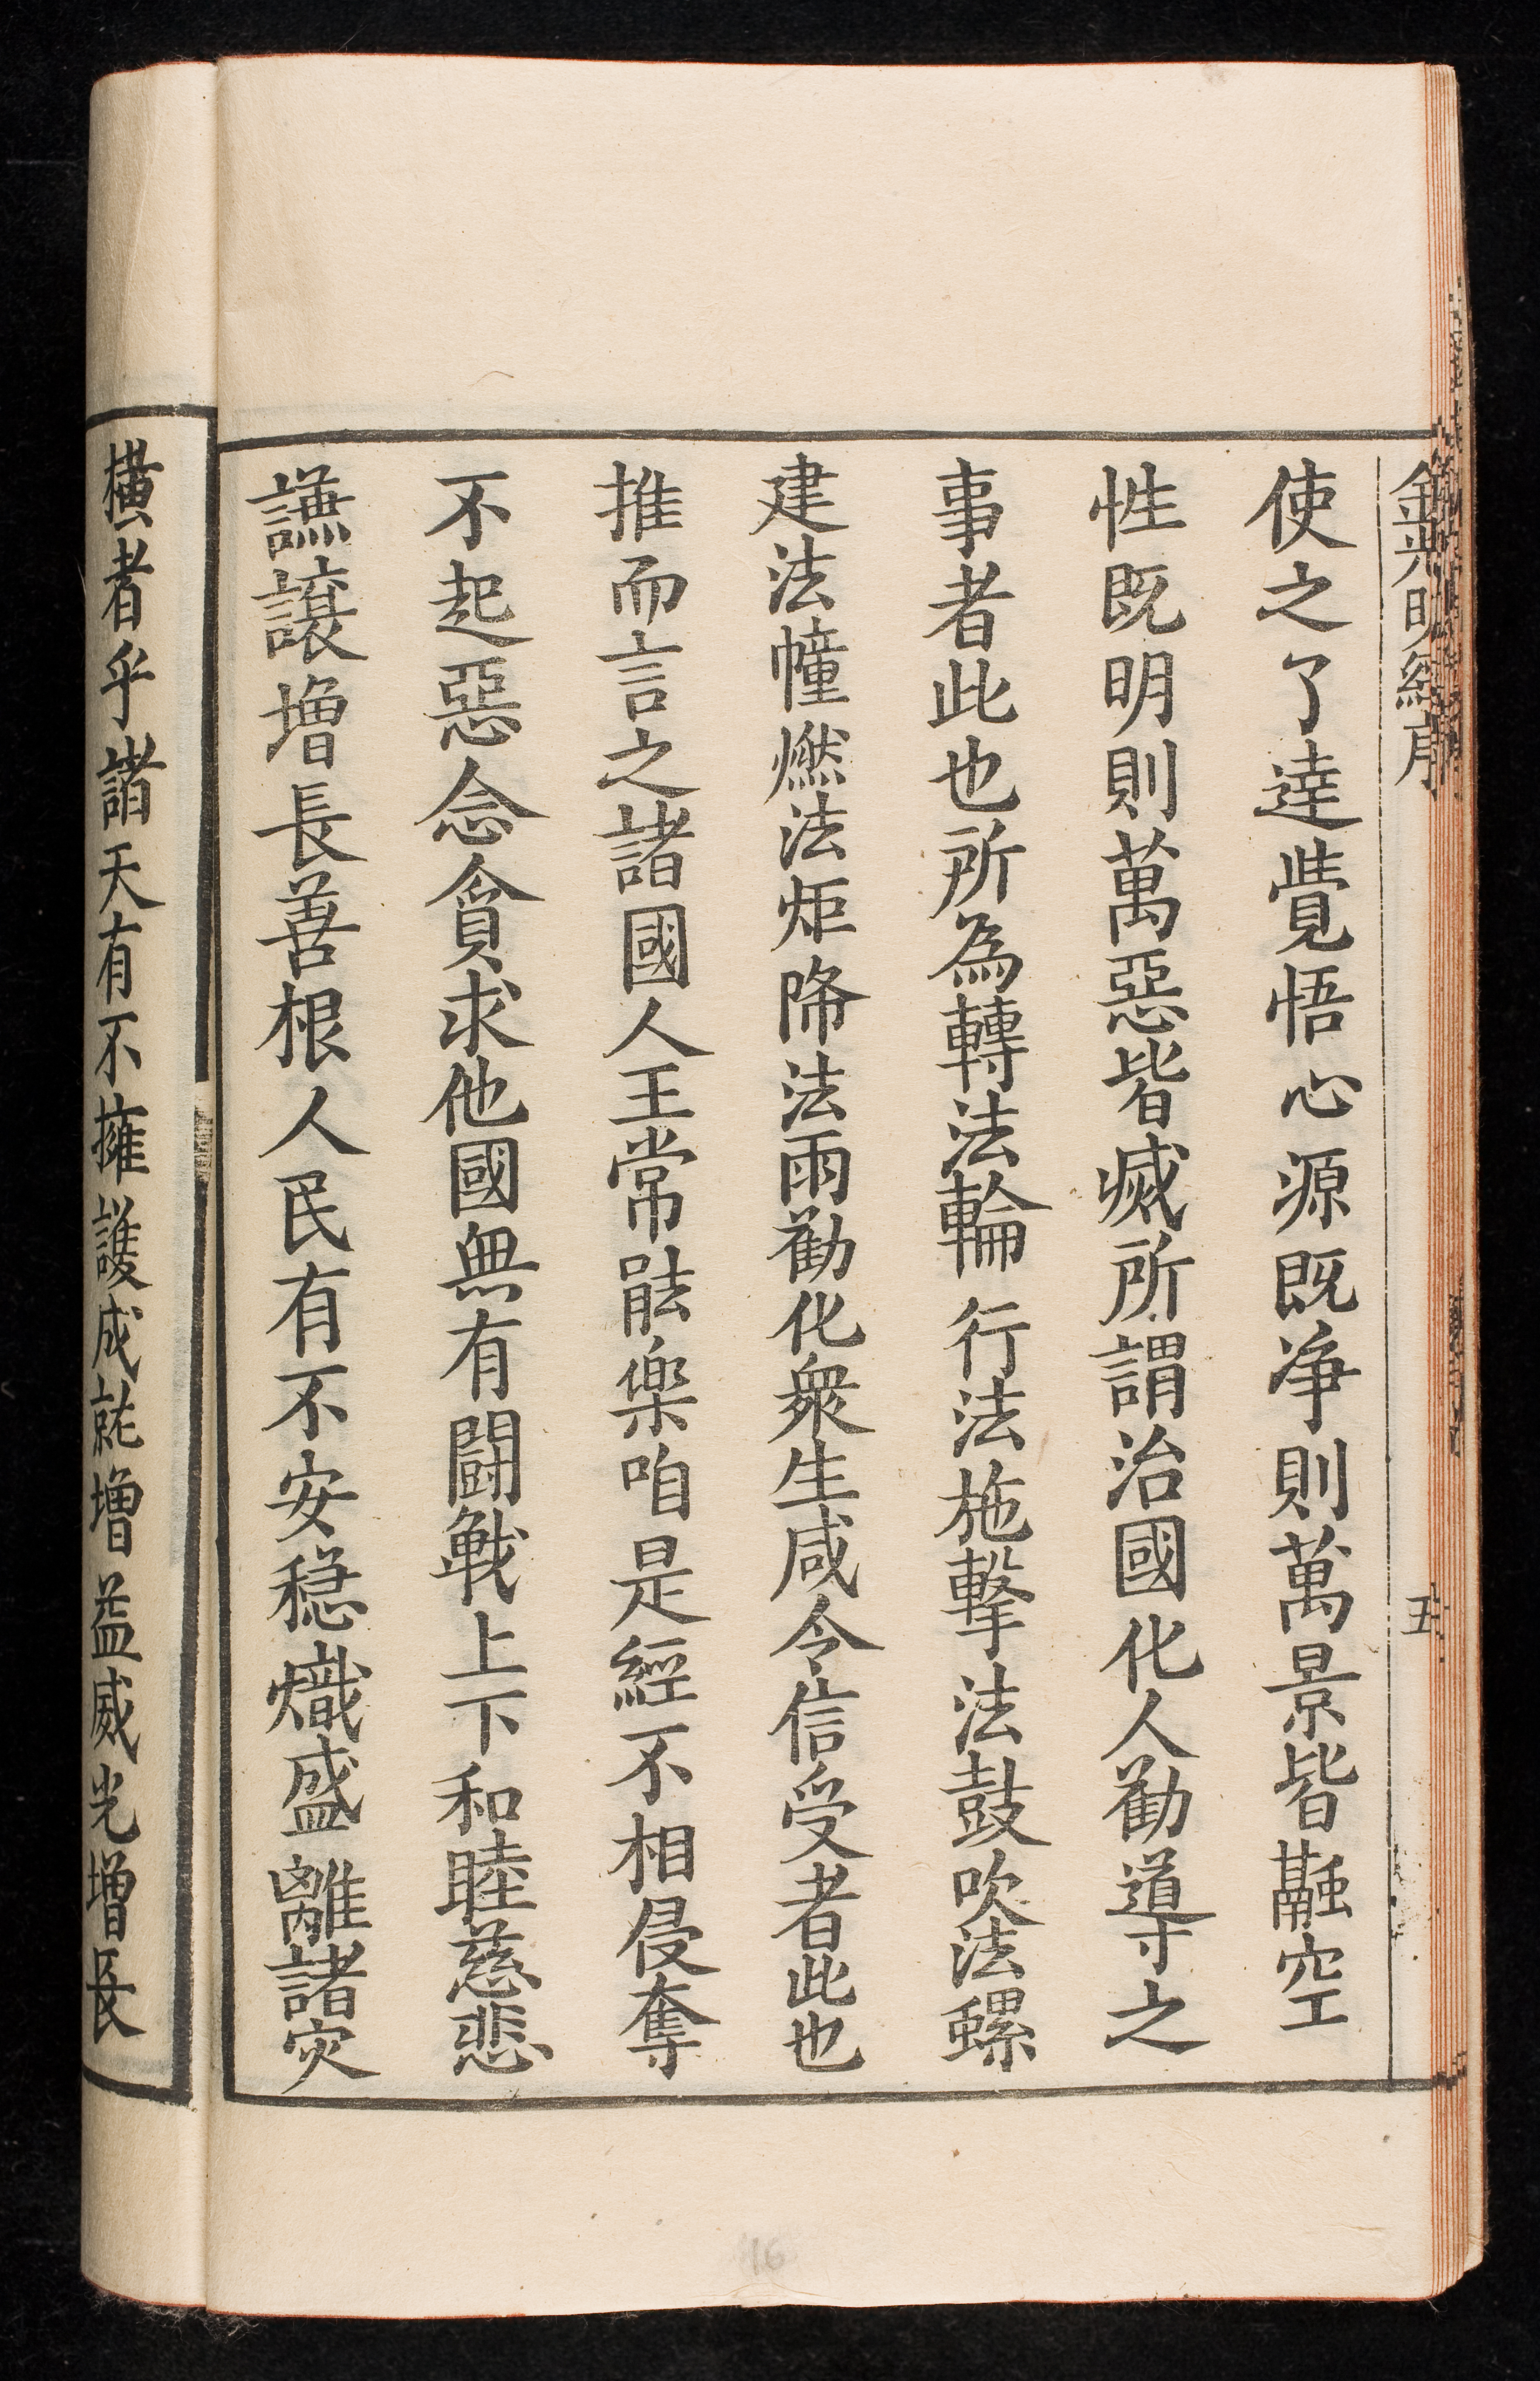 金光明經序
五
使之了達覺悟心源既净則萬景皆融空
性既明則萬惡皆滅所謂治國化人勸導之
事者此也所為轉法輪行法施擊法鼓吹法螺
建法幢燃法炬降法雨勸化衆生咸令信受者此也
推而言之諸國人王常能樂咱是經不相侵奪
不起惡念貪求他國無有闘戰上下和睦慈悲
謙讓增長善根人民有不安穏熾盛離諸灾
橫者乎諸天有不擁護成就增益威光增長